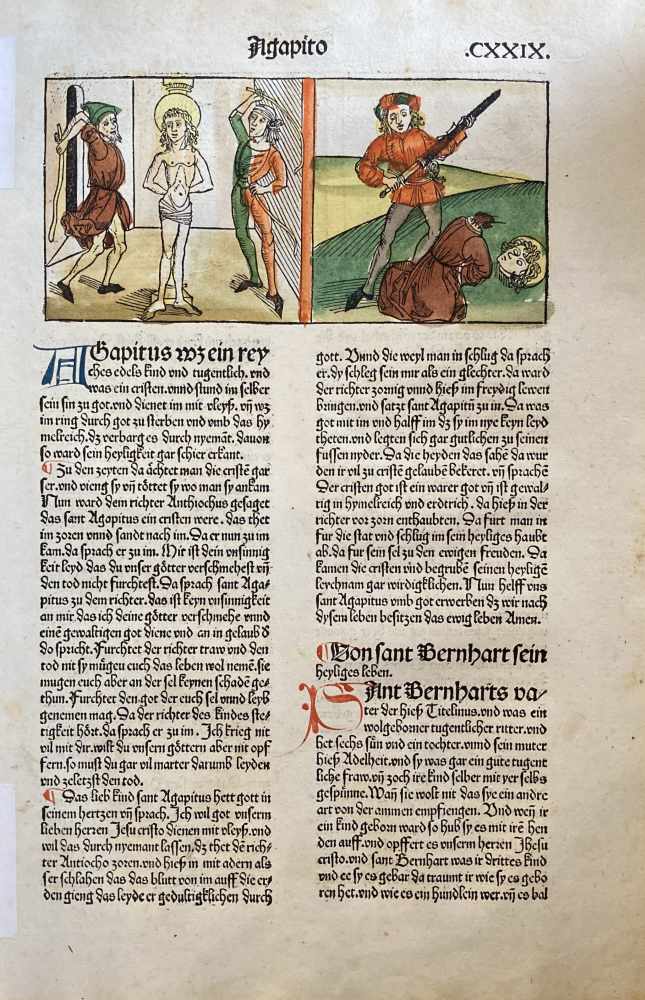 Agapito
.CXXIX.
AGapitus wz ein rey
ches edels kind vnd tugentlich. vnd
was ein cristen. vnnd stund im selber
sein sin zu got. vnd dienet im mit vleyß. vn̄ wz
im ring durch got zu sterben vnd vmb das hy
melreich. dz verbarg es durch nyemāt. dauon
so ward sein heyligkeit gar schier erkant.
¶ Zu den zeyten da ächtet man die cristē gar
ser. vnd vieng sy vn̄ töttet sy wo man sy ankam
Nun ward dem richter Anthiochus gesaget
das sant Agopitus ein cristen were. das thet
im zoren vnnd sandt nach im. Da er nun zu im
kam. da sprach er zu im. Mir ist dein vnsinnig
keit leyd das du vnser götter verschmehest vn̄
den tod nicht furchtest. Da sprach sant Aga-
pitus zu dem richter. das ist keyn vnsinnigkeit
an mir das ich deine götter verschmehe vnnd
einē gewaltigen got diene vnd an in gelaub d̄
do spricht. Furchtet der richter traw vnd den
tod nit sy mügen euch das leben wol nemē. sie
mugen euch aber an der sel keynen schadē ge-
thun. Furchtet den got der euch sel vnd leyb
genemen mag. Da der richter des kindes ste-
tigkeit hört. da sprach er zu im. Ich krieg nit
vil mit dir. wilt du vnsern göttern aber nit opf
fern. so must du gar vil marter darumb leyden
vnd zeletzst den tod.
¶ Das lieb kind sant Agapitus hett gott in
seinem hertzen vn̄ sprach. Ich wil got vnserm
lieben herren Jesu cristo dienen mit vleyß. vnd
wil das durch nyemant lassen. dz thet dē rich-
ter Antiocho zoren. vnd hieß in mit adern als
ser schlahen das das blutt von im auff die er-
den gieng das leyde er gedultigklichen durch
gott. Vnnd die weyl man in schlug da sprach
er. dy schleg sein mir als ein glechter. da ward
der richter zornig vnnd hieß im freydig lewen
bringen. vnd satzt sant Agapitū zu in. Da was
got mit im vnd halff im dz sy im nye keyn leyd
theten. vnd legten sich gar gutlichen zu seinen
fussen nyder. Da die heyden das sahē da wur
den ir vil zu cristē gelaubē bekeret. vn̄ sprachē
Der cristen got ist ein warer got vn̄ ist gewal-
tig in hymelreich vnd erdtrich. da hieß in der
richter vor zorn enthaubten. Da furt man in
fur die stat vnd schlug im sein heyliges haubt
ab. da fur sein sel zu den ewigen freuden. Da
kamen die cristen vnd begrubē seinen heyligē
leychnam gar wirdigklichen. Nun helff vns
sant Agapitus vmb got erwerben dz wir nach
dysem leben besitzen das ewig leben Amen.
¶ Von sant Bernhart sein
heyliges leben.
SAnt Bernharts va-
ter der hieß Titelinus. vnd was ein
wolgeborner tugentlicher ritter. vnd
het sechs sün vnd ein tochter. vnnd sein muter
hieß Adelheit. vnd sy was gar ein gute tugent
liche fraw. vn̄ zoch ire kind selber mit yer selbs
gespünne. Wan̄ sie wolt nit das sye ein andre
art von der ammen empfiengen. Vnd wen̄ ir
ein kind geborn ward so hub sy es mit irē hen
den auff. vnd opffert es vnserm herren Jhesu
cristo. vnd sant Bernhart was ir drittes kind
vnd ee sy es gebar da traumt ir wie sy es gebo
ren het. vnd wie es ein hundlein wer. vn̄ es bal